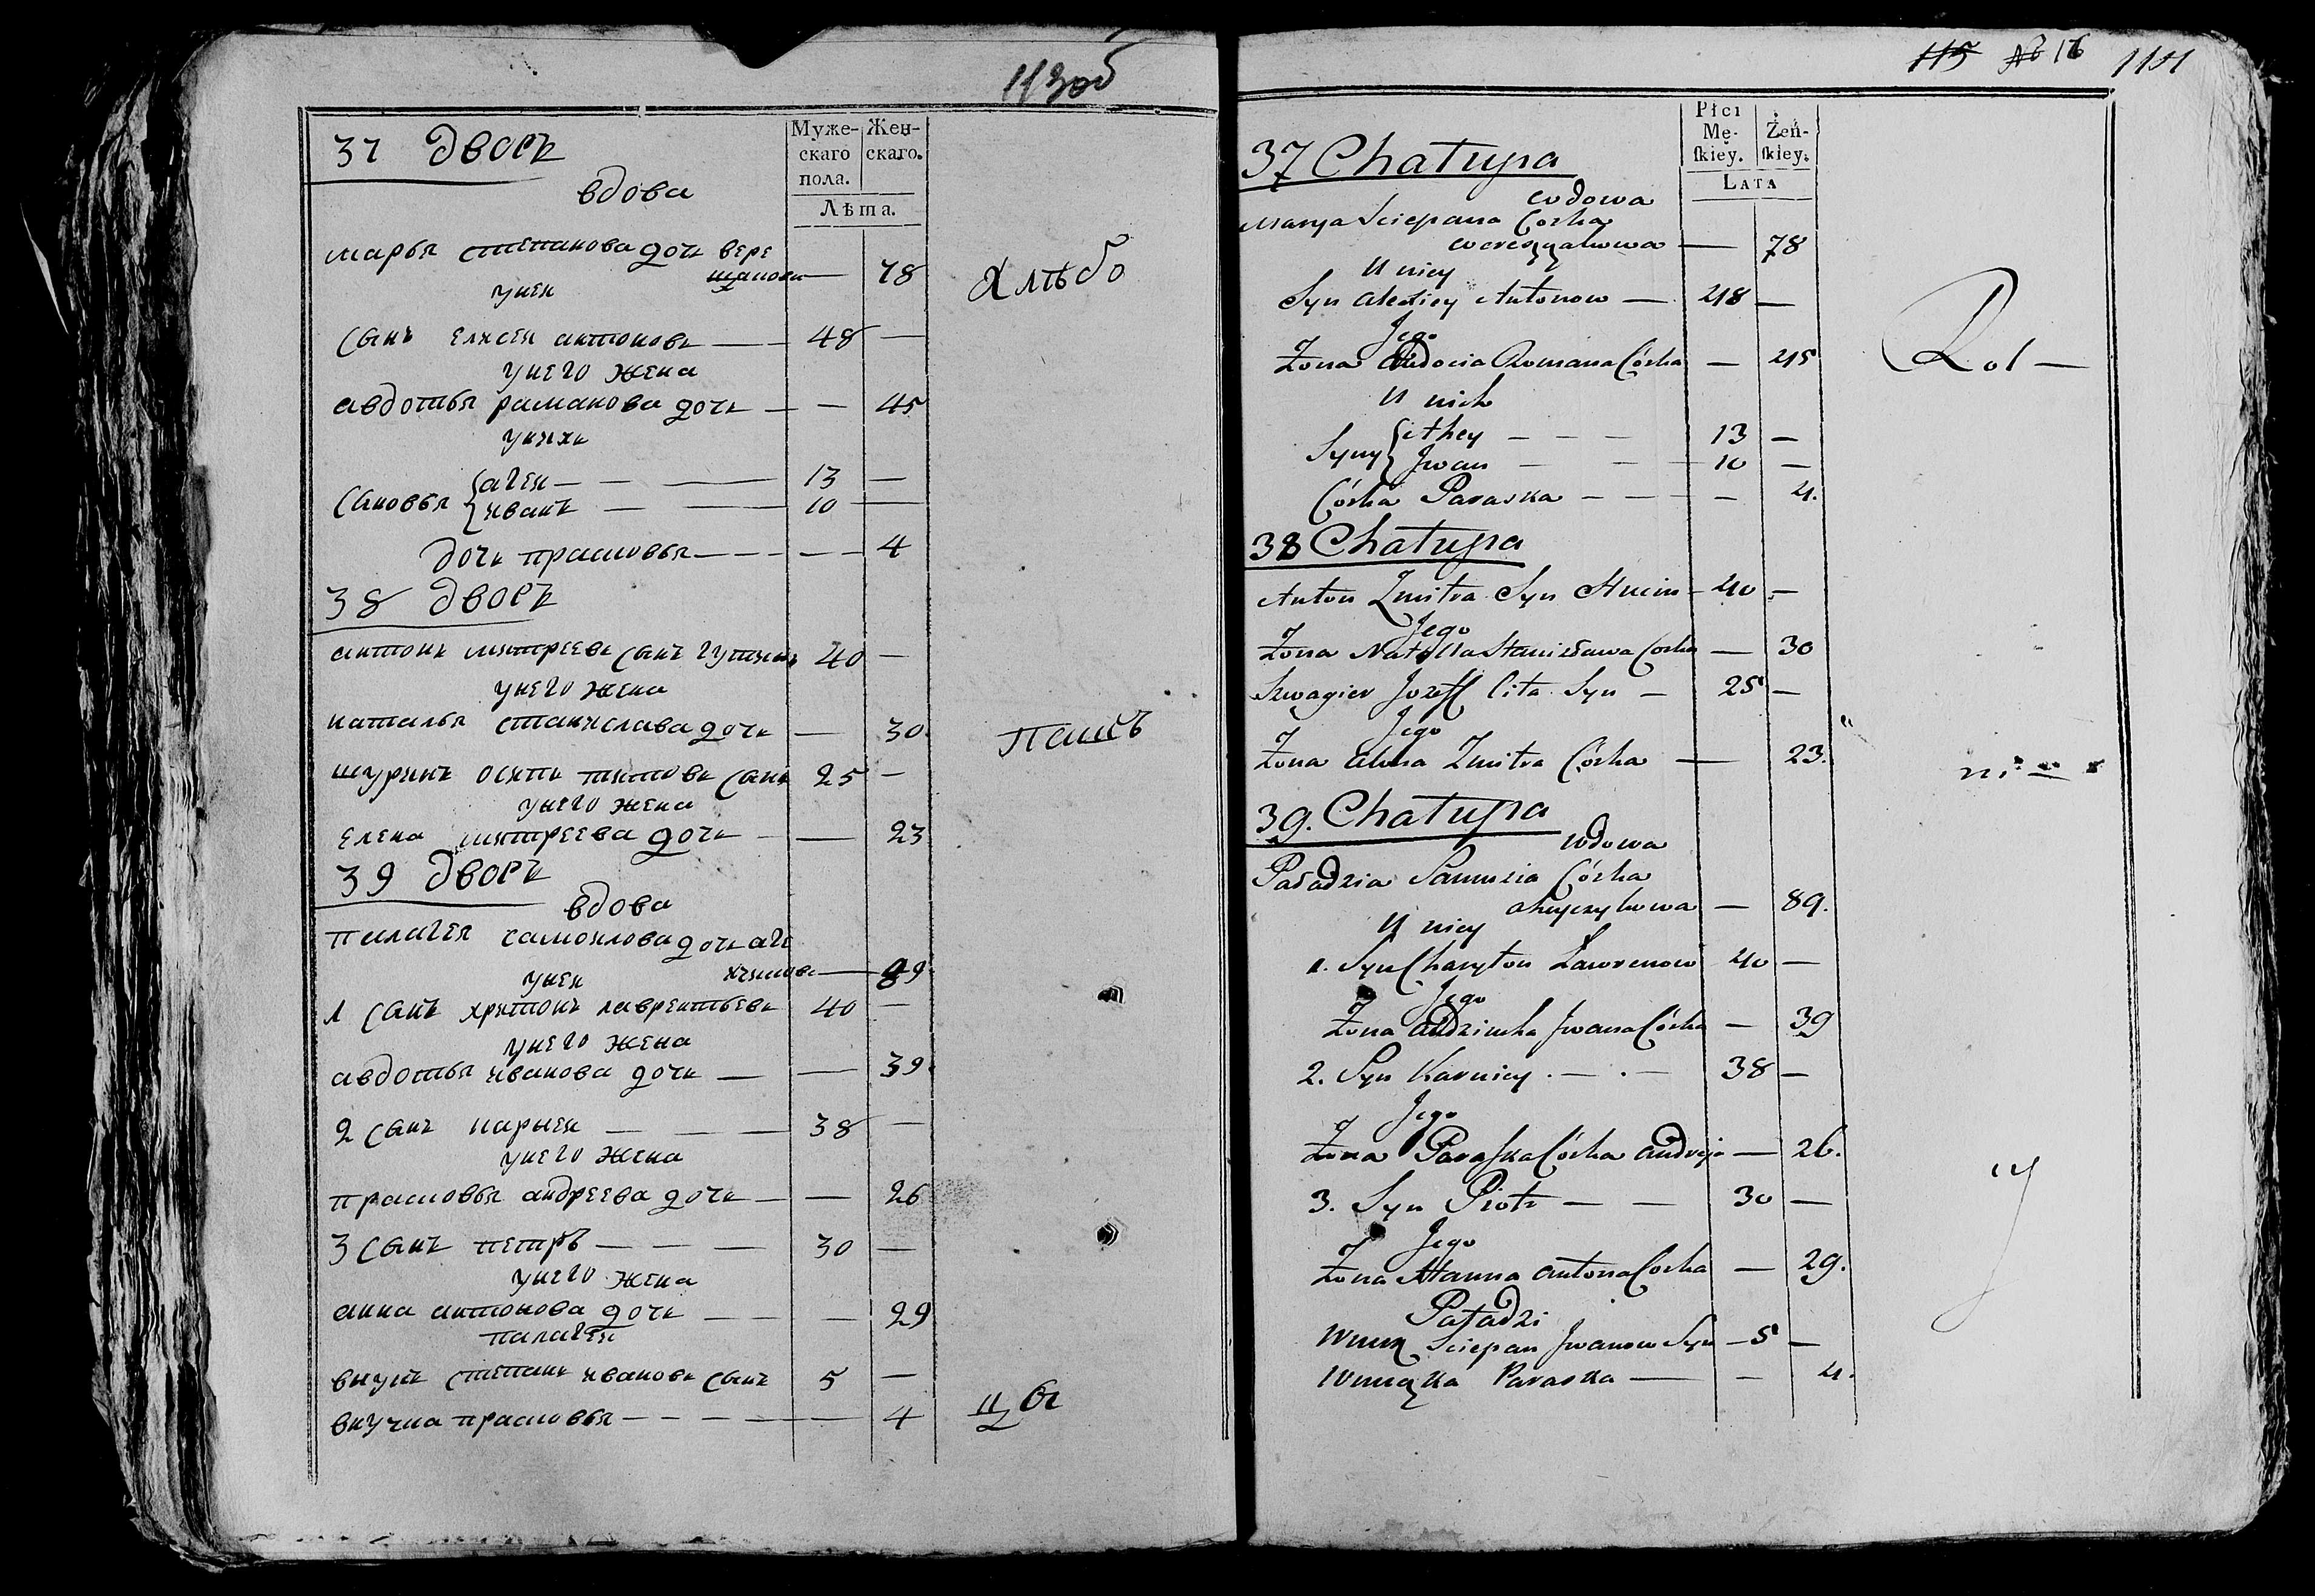 113об
37 дворъ
Муже-
скаго
пола.
Жен-
скаго.
Лѣта.
вдова
марья степанова дочь вере
щакова — 78
хлѣбо
у ней
сынъ елисей антоновъ — 48 —
у него жена
авдотья раманова дочь — — 45
у нихъ
сыновья { агей — — — 13 —
{ иванъ — — 10 —
дочь прасковья — — — — 4
38 дворъ
антонъ митреевъ сынъ 40 —
у него жена
наталья станислава дочь — 30
пашъ
шуринъ осипъ титовъ сынъ 25 —
у него жена
елена митреева дочь — — 23
39 дворъ
вдова
палагея самойлова дочь аге
— 89
у ней
1 сынъ харитонъ лаврентьевъ 40 —
у него жена
авдотья иванова дочь — — 39
2 сынъ карней — — — 38 —
у него жена
прасковья андреева дочь — — 26
3 сынъ петръ — — — 30 —
у него жена
анна антонова дочь — — — 29
палагеи
внукъ степанъ ивановъ сынъ 5 —
внучка прасковья — — — — — 4
цы
115 № 16 114
37 Chałupa
Płci
Mę-
ſkiey.
Żeń-
ſkiey.
LATA
wdowa
Marya Sciepana Córka
Wereszczakowa — 78
U niey
Syn Aleksiey Antonow — 48 —
Jego
Żona Audocia Romana Córka — 45
Rol —
U nich
Syny { Ahey — — — 13 —
{ Jwan — — — 10 —
Córka Paraska — — — — 4.
38 Chałupa
Anton Zmitra Syn — 40 —
Jego
Żona Natalla Stanisława Córka — 30
Szwagier Jozeff Cita Syn — 25 —
Jego
Żona Alena Zmitra Córka — 23.
ni
39. Chałupa
wdowa
Paładzia Samuzia Córka
— 89.
U niey
1. Syn Charyton Ławrenow 40 —
Jego
Żona Audziucha Jwana Córka — 39
2. Syn Karniey — — 38 —
Jego
Żona Paraska Córka Andreja — 26.
3. Syn Piotr — — 30 —
cy
Jego
Żona Hanna Antona Córka — 29.
Paładzi
Wnuk Sciepan Jwanow Syn — 5 —
Wnuczka Paraska — — 4.